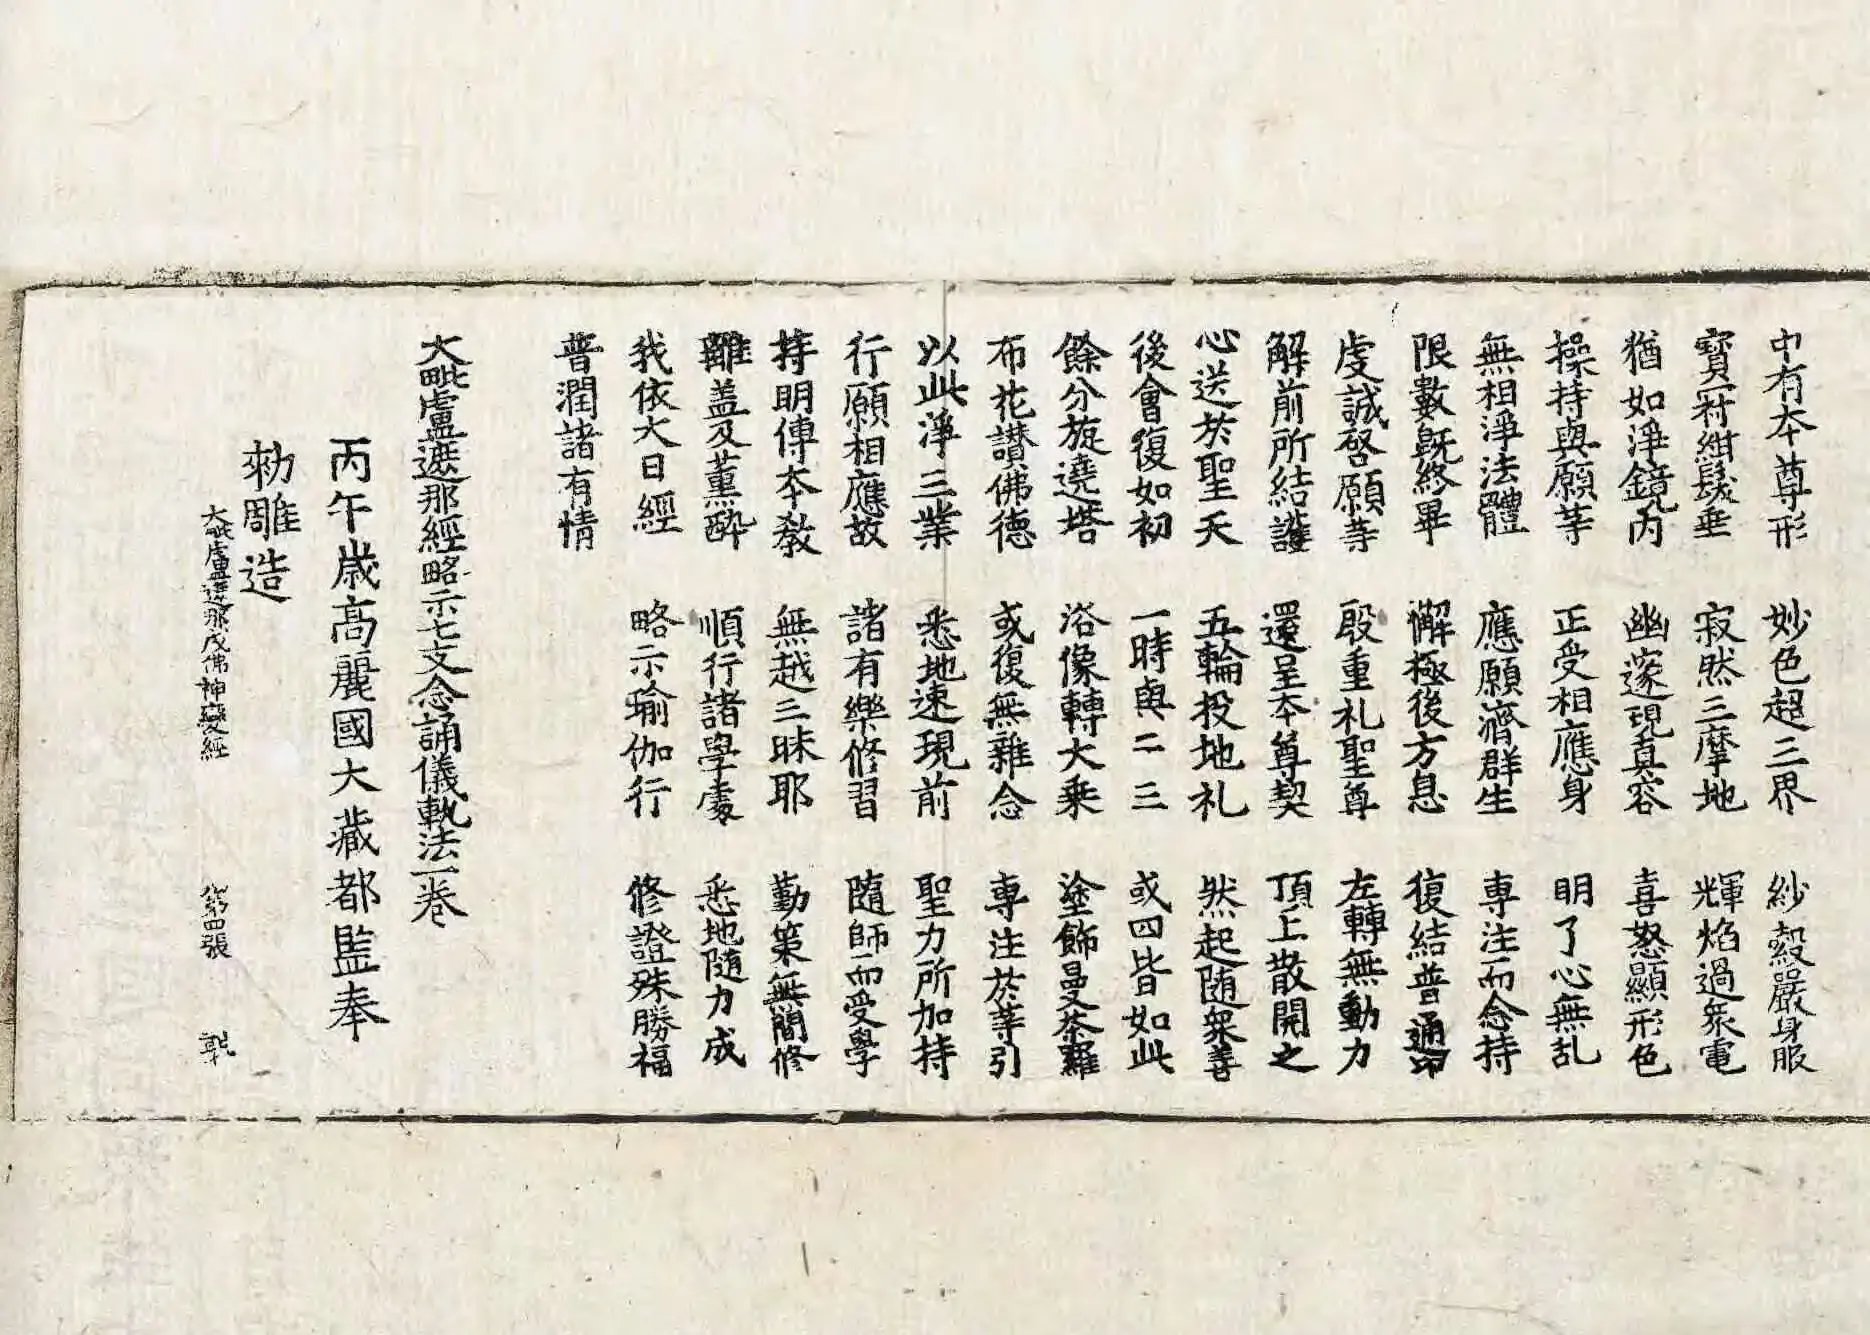 中有本尊形 妙色超三界 紗縠嚴身服
寶冠紺髮垂 寂然三摩地 輝焰過衆電
猶如淨鏡內 幽邃現真容 喜怒顯形色
操持與願等 正受相應身 明了心無乱
無相淨法體 應願濟群生 専注而念持
限數旣終畢 懈極後方息 復結普通印
虔誠啓願等 殷重礼聖尊 左轉無動力
解前所結護 還呈本尊契 頂上散開之
心送於聖天 五輪投地礼 然起随衆善
後會復如初 一時與二三 或四皆如此
餘分旋遶塔 浴像轉大乗 塗飾曼荼羅
布花讃佛德 或復無雜念 専注於等引
以此淨三業 悉地速現前 聖力所加持
行願相應故 諸有樂修習 隨師而受學
持明傳本教 無越三昧耶 勤策無間修
離盖及薫醉 順行諸學處 悉地随力成
我依大日經 略示瑜伽行 修證殊勝福
普潤諸有情
大毗盧遮那經略示七支念誦儀軌法一卷
丙午歳高麗國大藏都監奉
勑雕造
大毗盧遮那成佛神變經 第四張